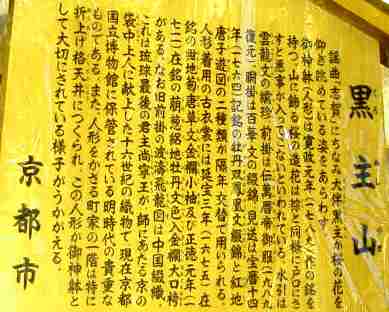 黒主山
謡曲「志賀」にちなみ大伴黒主が桜の花を
仰ぎ眺めている姿をあらわす。
御神躰(人形)は寛政元年(一七八九)作の銘を
持つ。山に飾る桜の造花は粽と同様に戸口にさ
すと悪事除けになるといわれている。水引は
雲龍文の繍、前掛は仁萬暦帝御服(一九八九
復元)、胴掛は百華文の綴錦、見送は宝暦十四
年(一七六四)記銘の牡丹双鳳凰文綴錦と紅地
唐子遊図の二種類が隔年交替で用いられる。
人形着用の古衣裳には延宝三年(一六七五)在
銘の紺地菊唐草文金襴小袖及び正徳元年(一
七一一)在銘の萌葱絽地牡丹文色入金襴大口袴
がある。なお旧前掛の波濤飛龍図は中国綴織。
これは琉球最後の君主尚寧王が師にあたる京の
袋中上人に献上した十六世紀の織物で現在京都
国立博物館に保管されている明時代の貴重な
ものである。また、人形をかざる町家の一階は特に
折上げ格天井につくられ、この人形が御神躰と
して大切にされている様子がうかがえる。
京都市